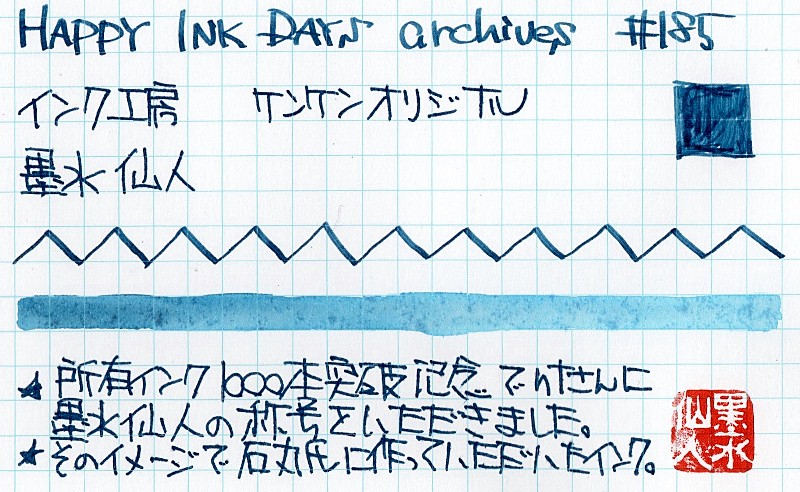 HAPPY INK DAYS archives #185
インク工房 ケンケンオリジナル
墨水仙人
★ 所有インク1000本突破記念でnさんに
墨水仙人の称号をいただきました。
★ そのイメージで石丸氏に作っていただいたインク。
墨水仙人